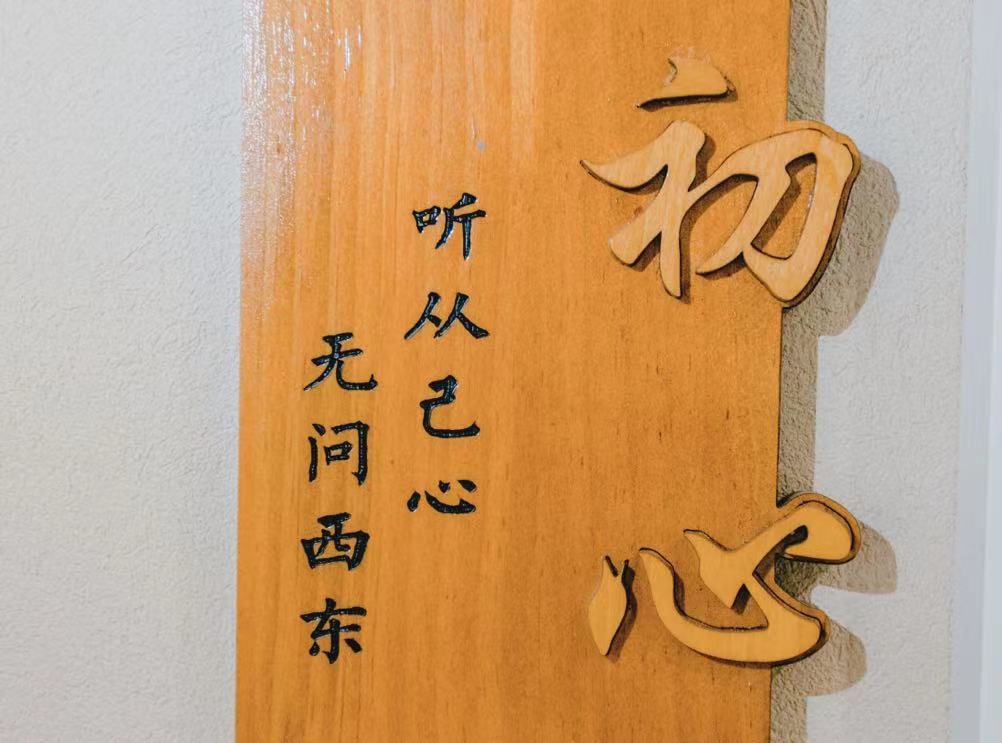 初心
听从己心
无问西东